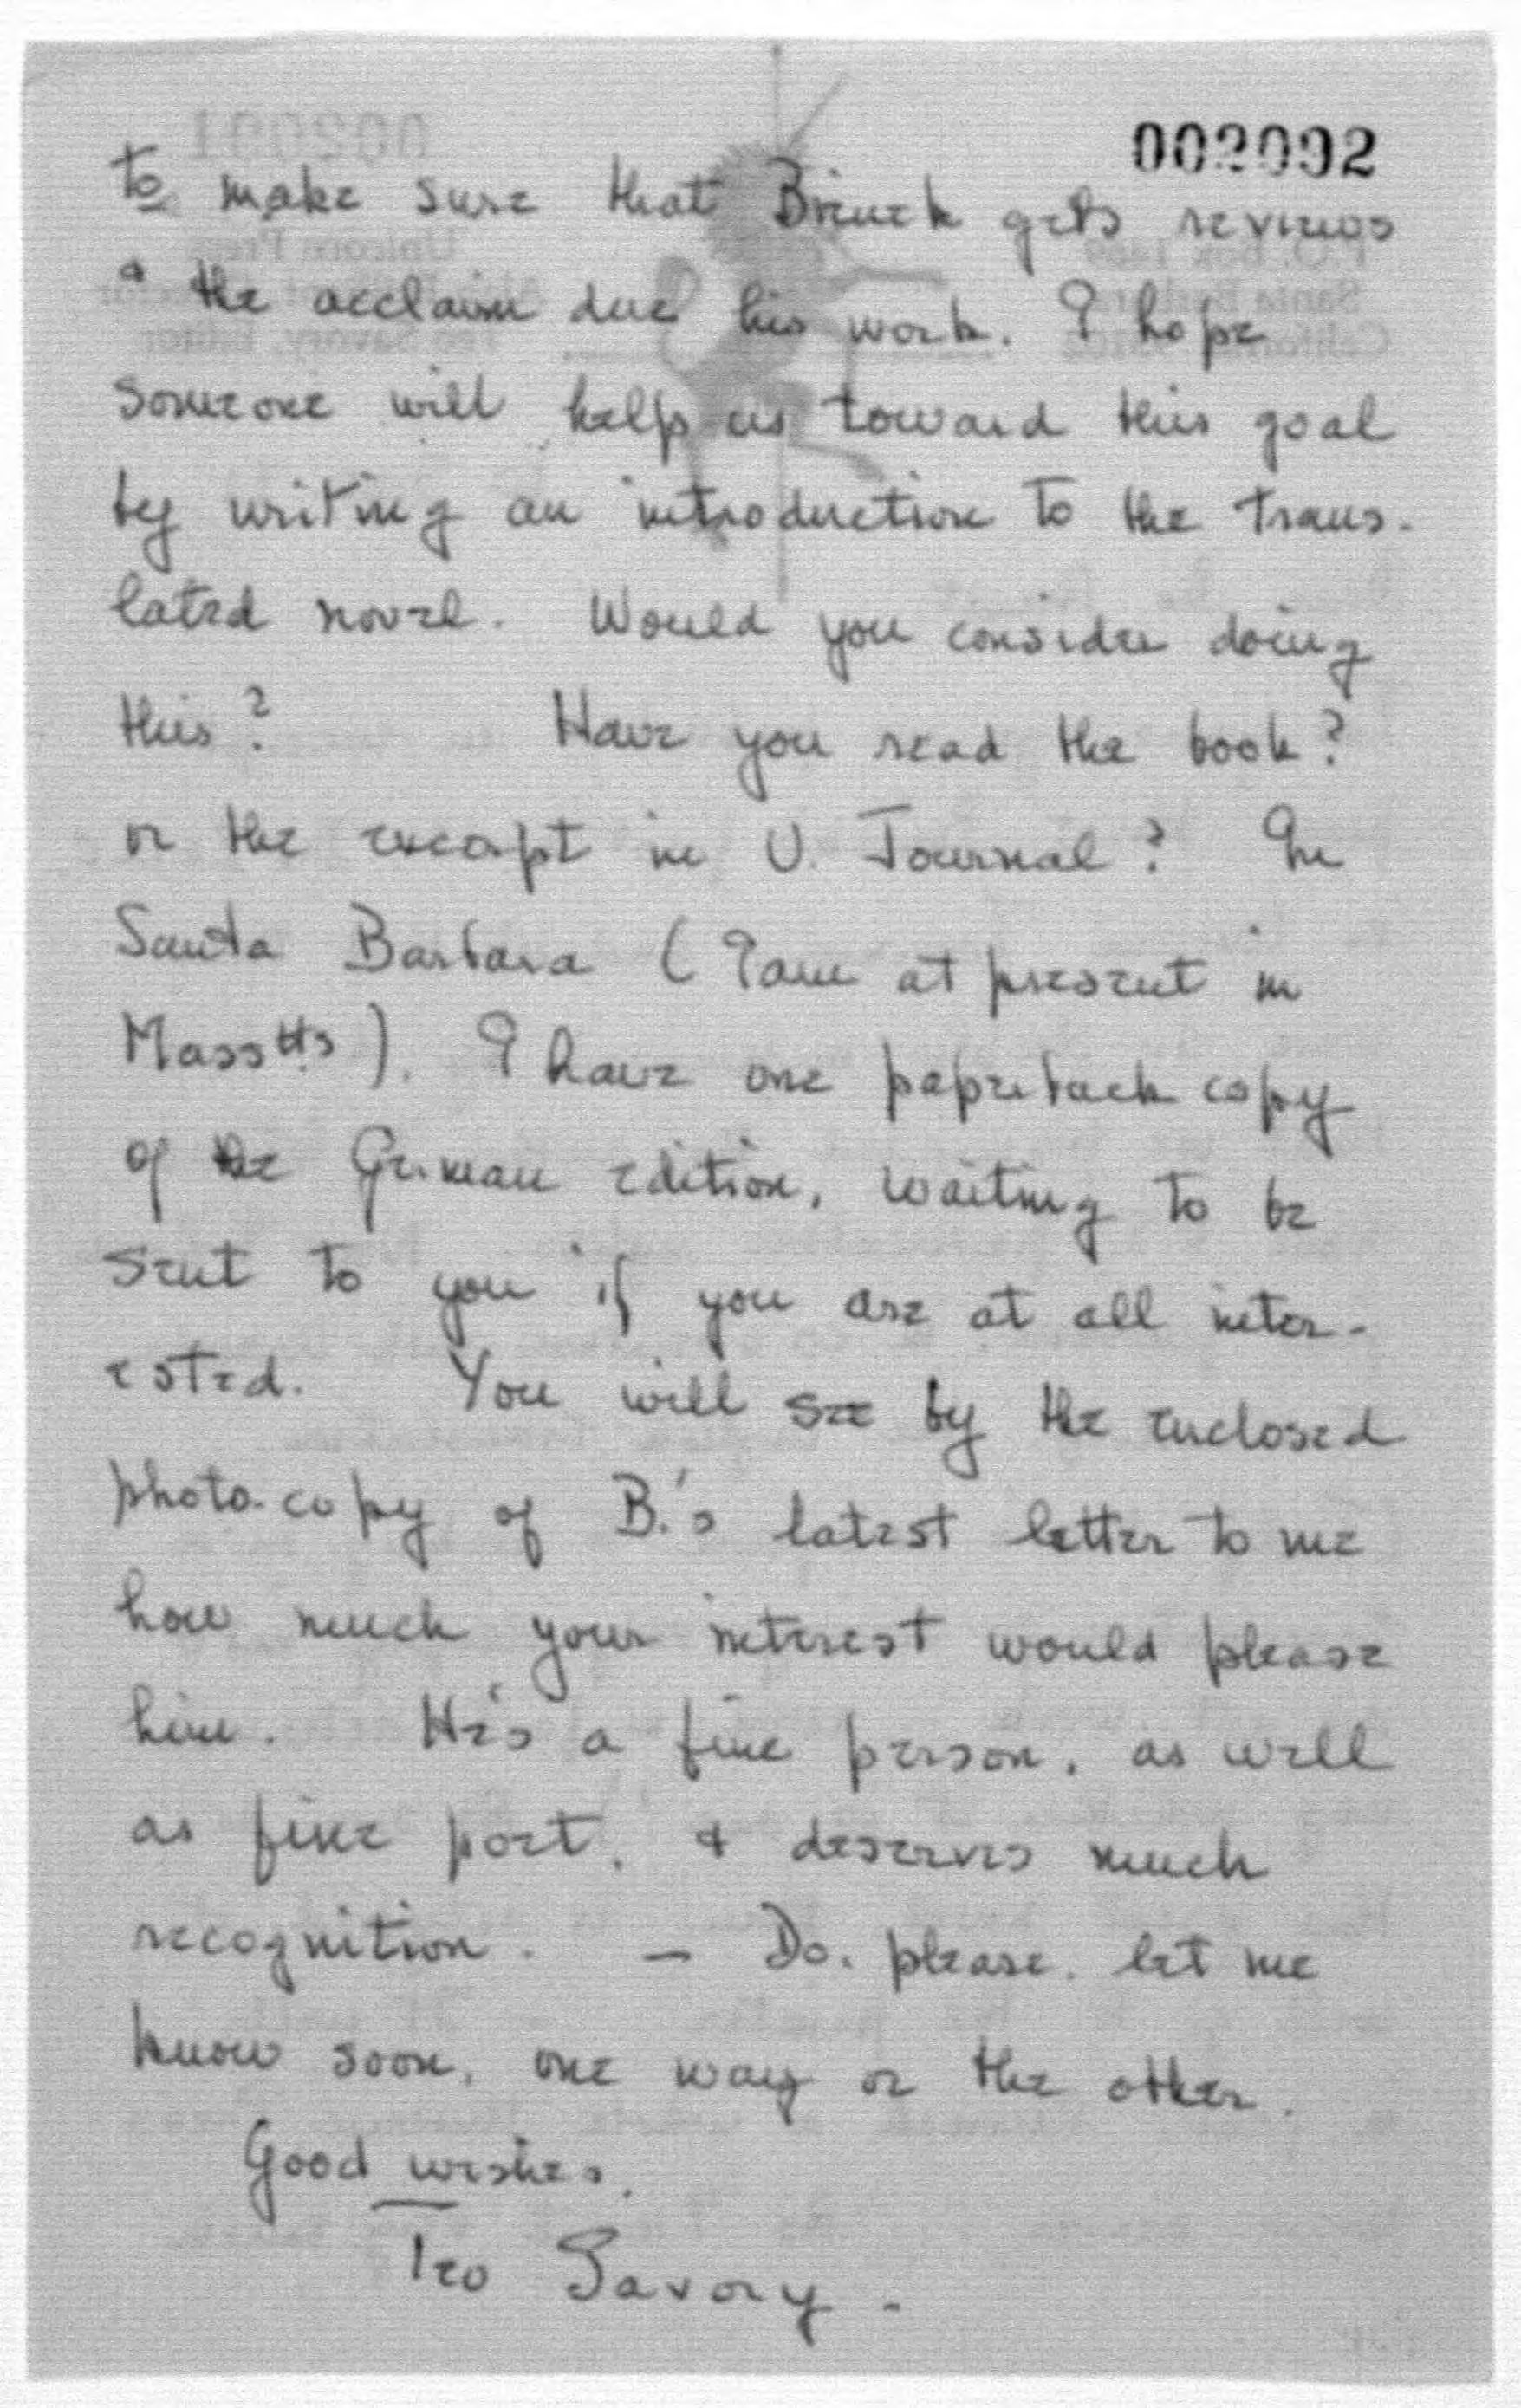 002092
to make sure that Bieuek gets reviews
& the acclaim due his work. I hope
someone will help us toward this goal
by writing an introduction to the trans-
lated novel. Would you consider doing
this? Have you read the book?
or the excerpt in U. Journal? In
Santa Barbara (I am at present in
Masstts). I have one paperback copy
of the German edition, waiting to be
sent to you if you are at all inter-
ested. You will see by the enclosed
photo-copy of B.'s latest letter to me
how much your interest would please
him. He's a fine person, as well
as fine poet, & deserves much
recognition. — Do, please, let me
know soon, one way or the other.
Good wishes,
Teo Savory -